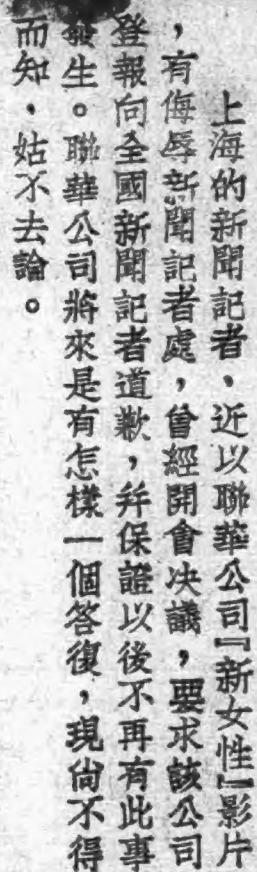 上海的新聞記者、近以聯華公司『新女性』影片
，有侮辱新聞記者處，曾經開會决議，要求該公司
登報向全國新聞記者道歉，幷保證以後不再有此事
發生。聯華公司將來是有怎樣一個答復，現尙不得
而知，姑不去論。